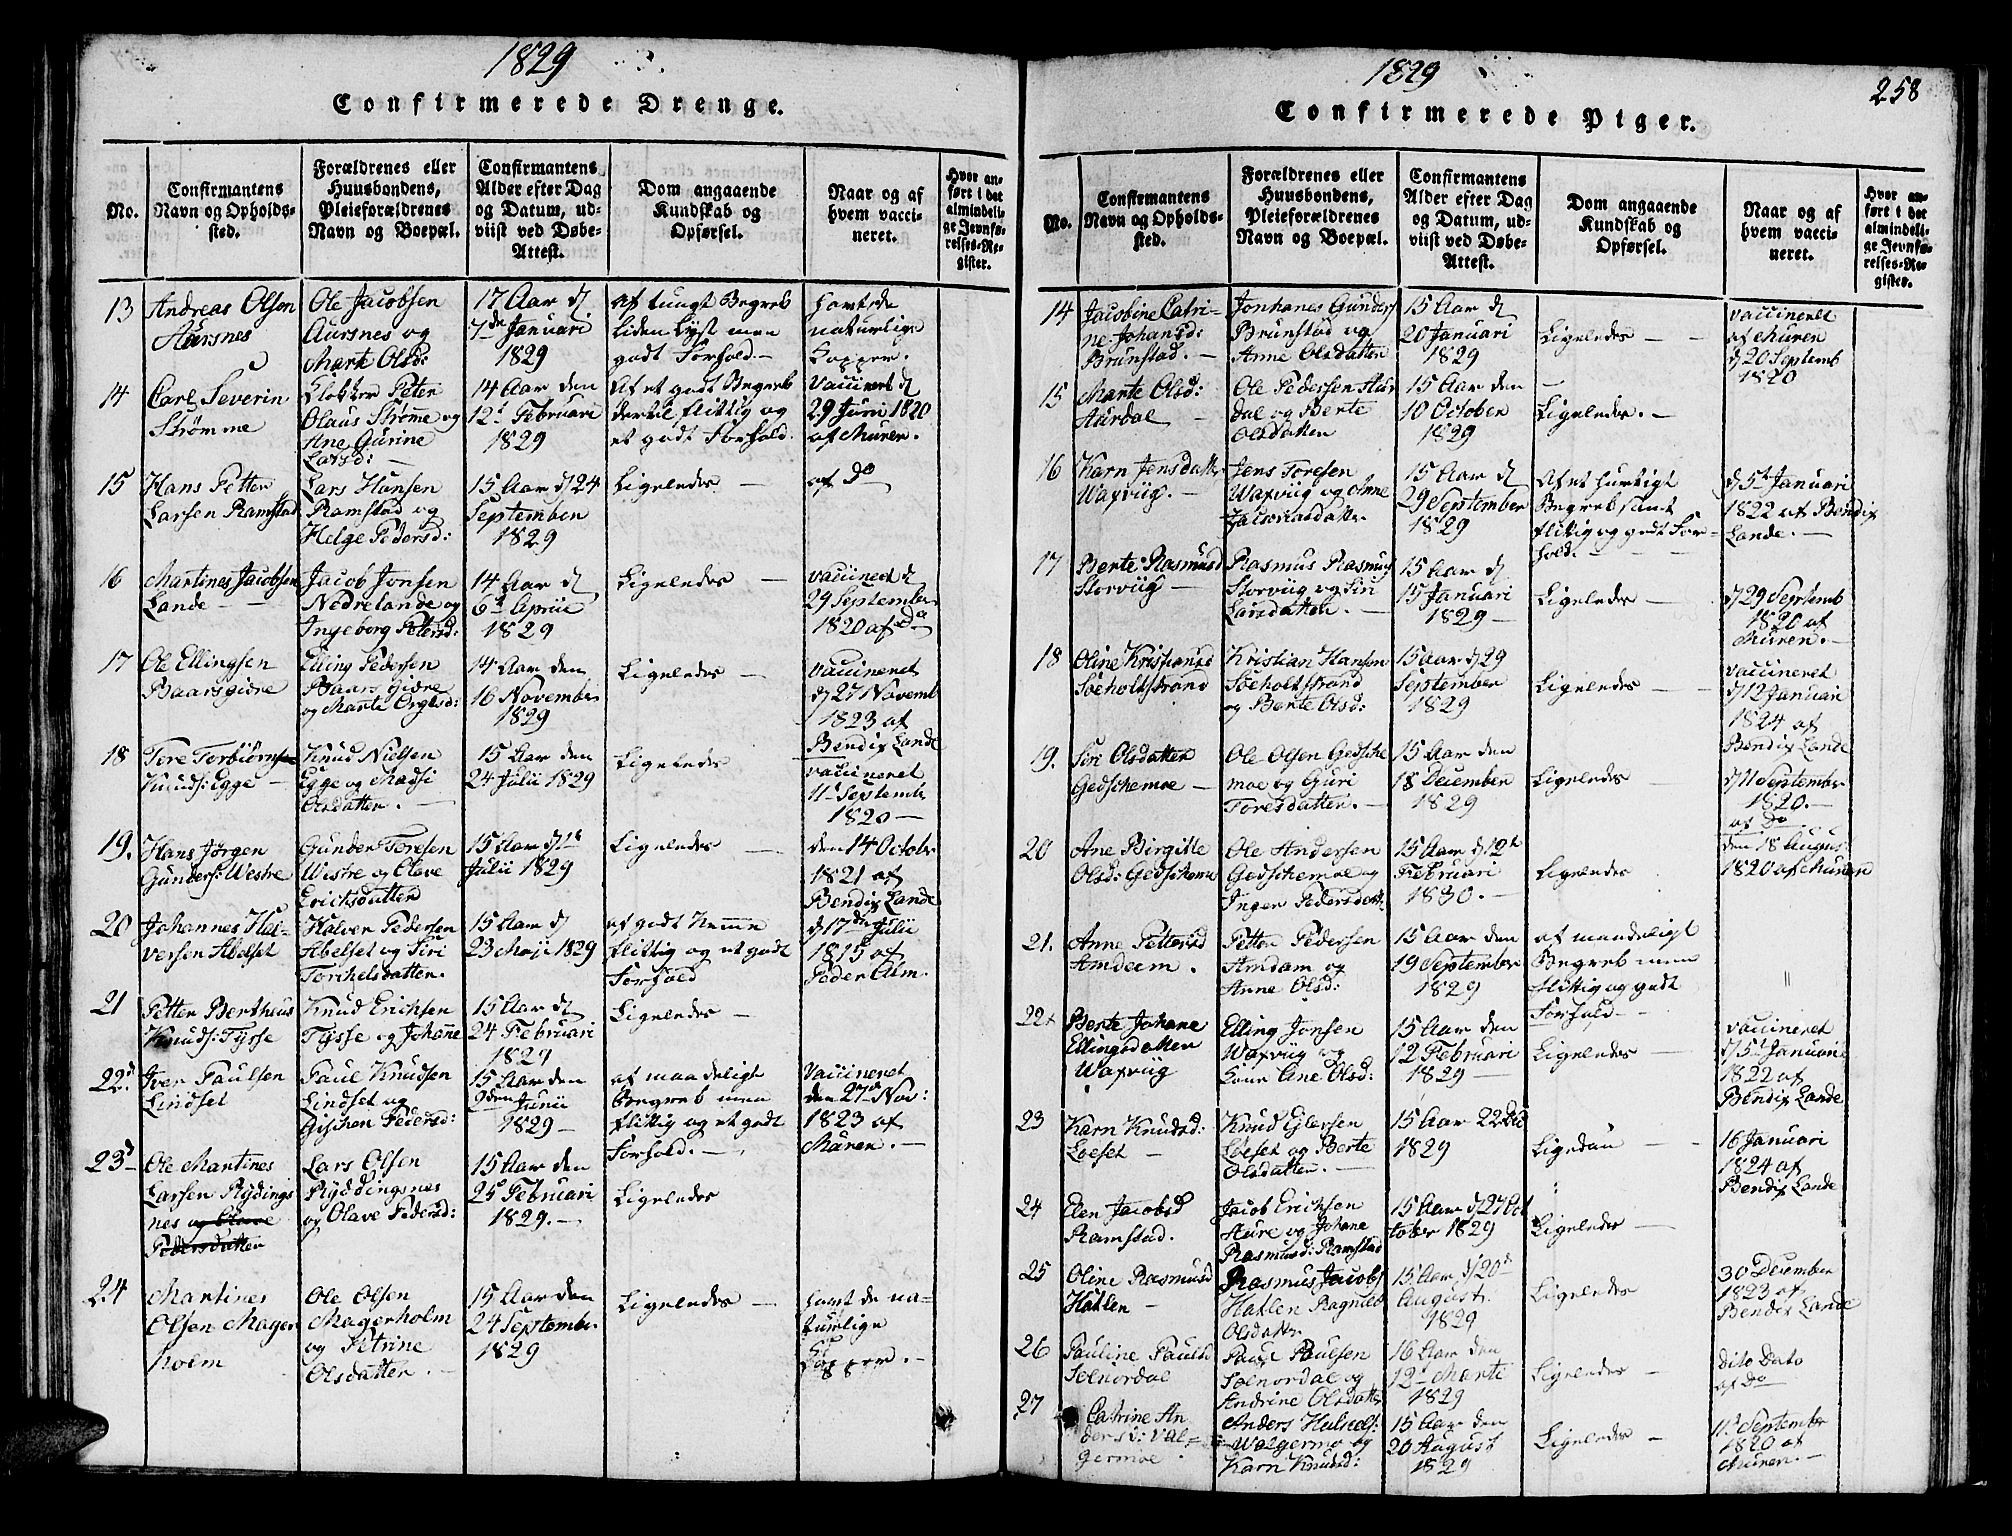 1829
Confirmerede Drenge.
No.
Confirmantens
Navn og Opholds-
sted.
Forældrenes eller
Huusbondens,
Pleieforældrenes
Navn og Boepæl.
Confirmantens
Alder efter Dag
og Datum, ud-
viist ved Døbe-
Attest.
Dom angaaende
Kundskab og
Opførsel.
Naar og af
hvem vacci-
neret.
Hvor an-
ført i det
almindeli-
ge Jevnfø-
relses-Re-
gister.
13
Andreas Olsen
Aursnes
Ole Jacobsen
Aursnes og
Marte Olsd:
17 Aar d
7de Januari
1829
af tungt Begreb
liden Lyst men
godt Forhold -
havt de
naturlige
Kopper.
14
Carl Severin
Strømme
Klokker Peter
Olaus Strøme og
Ane Gurine
Larsd: -
14 Aar den
12t Februari
1829
Af et godt Begreb
dertil flittig og
et godt Forhold.
Vaccineret d
29 Juni 1820
af Muren.
15
Hans Petter
Larsen Ramstad
Lars Hansen
Ramstad og
Helge Pedersd:
15 Aar d 24
September
1829
Ligeledes -
af Do
16
Martines Jacobsen
Lande -
Jacob Jonsen
Nedrelande og
Ingeborg Petersd:
14 Aar d
6t Aprii
1829
Ligeledes -
vaccineret d
29 September
1820 af Do
17
Ole Ellingsen
Baarsgidre
Elling Pedersen
Baarsgidre
og Marte
14 Aar den
16 November
1829
Ligeledes -
vaccineret
d 27 Novemb
1823 af
Bendix Lande
18
Tore Torbiørnsen
Knuds: Egge -
Knud Nielsen
Egge og Madsi
Olsdatter. -
15 Aar den
24 Julii 1829
Ligeledes -
vaccineret
11t Septemb
1820 -
19.
Hans Jørgen
Gunders: Westre
Gunder Toresen
Westre og Olave
Ericksdatter
15 Aar d 18
Julii 1829
Ligeledes -
den 14 Octobr
1821 af
Bendix Lande
20
Johannes Hal-
versen Abelset
Halver Pedersen
Abelset og Siri
Torchelsdatter.
15 Aar d
23 Maji 1829
af godt Nemme
flittig og et godt
Forhold
d 17de Julii
1815 af
Peder Alm.
21
Petter Bertheus
Knuds: Tÿsse
Knud Erichsen
Tÿsse og Johane
15 Aar d
24 Februari
1829
Ligeledes -
22
Iver Paulsen
Lindset
Paul Knudsen
Lindset og
Gischen Pedersd:
15 Aar den
9den Junii
1829 -
af maadeligt
Begreb men
flittig og et godt
Forhold. -
Vaccineret
den 27de Nov:
1823 af
Muren. -
23
Ole Martines
Larsen Rÿdings
nes og Olave
Pedersdatter
Lars Olsen
Rÿddingsnes
og Olave Pedersd:
15 Aar den
25t Februari
1829. -
Ligeledes
24
Martines
Olsen Mager
holm
Ole Olsen
Magerholm
og Petrine
Olsdatter -
15 Aar den
24 September
1829
Ligeledes -
havt de na-
turlige
Kopper. -
1829
258
Confirmerede Piger.
No.
Confirmantens
Navn og Opholds-
sted.
Forældrenes eller
Huusbondens,
Pleieforældrenes
Navn og Boepæl.
Confirmantens
Alder efter Dag
og Datum, ud-
viist ved Døbe-
Attest.
Dom angaaende
Kundskab og
Opførsel.
Naar og af
hvem vacci-
neret.
Hvor an-
ført i det
almindeli-
ge Jevnfø-
relses-Re-
gister.
14
Jacobine Catri-
ne Johansd:
Brunstad. -
Jonhanes Gunders
Brunstad og
Anne Olsdatter
15 Aar d
20 Januari
1829
Ligeledes -
vaccineret
af Muren
d 20 Septemb
1820
15
Marte Olsd:
Aurdal -
Ole Pedersen Aur
dal og Berte
Olsdatter
15 Aar den
10 October
1829
Ligeledes. -
16
Karn Jensdatter
Waxvüg. -
Jens Toresen
Waxvüg og Ane
15 Aar d
29 September
1829
Af et hurtigt
Begreb samt
flittig og godt For-
hold. -
d 5t Januari
1822 af Bendix
Lande. -
17
Berte Rasmusd
Storvüg -
Rasmus Rasmus
Storvüg og Siri
Larsdatter. -
15 Aar d
15 Januari
1829
Ligeledes -
d 29 Septemb
1820 af
Muren. -
18
Oline Kristiansd
Søeholtstrand
Kristian Hansen
Søeholtstrand
og Berte Olsd:
15 Aar d 29
September
1829
Ligeledes -
vaccineret
d 12 Januari
1824 af
Bendix Lande
19.
Siri Olsdatter
Gedschemoe -
Ole Olsen Gedsche
moe og Guri
Toresdatter. -
15 Aar den
18 December
1829
Ligeledes -
d 11 September
1820. -
af Do
20
Ane Birgitte
Olsd: Gedschemo
Ole Andersen
Gedschemoe og
Inger Pedersdatt.
15 Aar d 12t
Februari
1830. -
Ligeledes -
den 18 Augus:
1820 af Muren
21.
Anne Pettersd
Amdeem.
Petter Pedersen
Amdam og
Anne Olsd:
15 Aar den
19 September
1829
af maadeligt
Begreb men
flittig og godt
Forhold -
"
22
Berte Johane
Ellingsdatter
Waxvüg
Elling Jonsen
Waxvüg og
Kone Ane Olsd:
15 Aar den
12 Februari
1829 -
Ligeledes -
vaccineret
d 5t Januari
1822 af
Bendix Lande
23
Karn Knudsd:
Løeset -
Knud Ejlersen
Løeset og Berte
Olsdatter. -
15 Aar 22 Dec
1829
Ligedan -
16 Januari
1824 af
Bendix Lande
24
Elen Jacobsd
Ramstad.
Jacob Erichsen
Aure og Johane
Rasmusd: Ramstad
15 Aar d 27 Oc
tober 1829
Ligeledes -
25
Oline Rasmusd
Hatlen -
Rasmus Jacobs
Hatlen Ragnild
Olsdatter
15 Aar d 20d
August.
1829
Ligeledes
30 December
1823 af
Bendix Lande
26
Pauline Paulsd
Solnordal
Paul Paulsen
Solnordal og
Andrine Olsdatter
16 Aar den
12t Marti
1829
Ligeledes -
dito Dato
af Do
27
Catrine An
dersd: Val-
germoe.
Anders Hulsels:
Walgermo og
Karn Knudsd:
15 Aar den
20 August
1829
Ligeledes -
11t September
1820 af
Muren. -